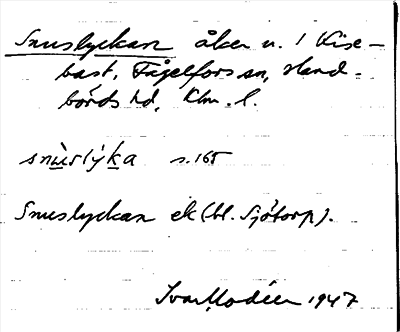 Snuslyckan åker n. 1 Kise-
bast, Fågelfors sn, Hand-
börds hd, Klm. l.
snùslýka s. 165
Snuslyckan ek (bl. Sjötorp).
Ivar Modéer 1947